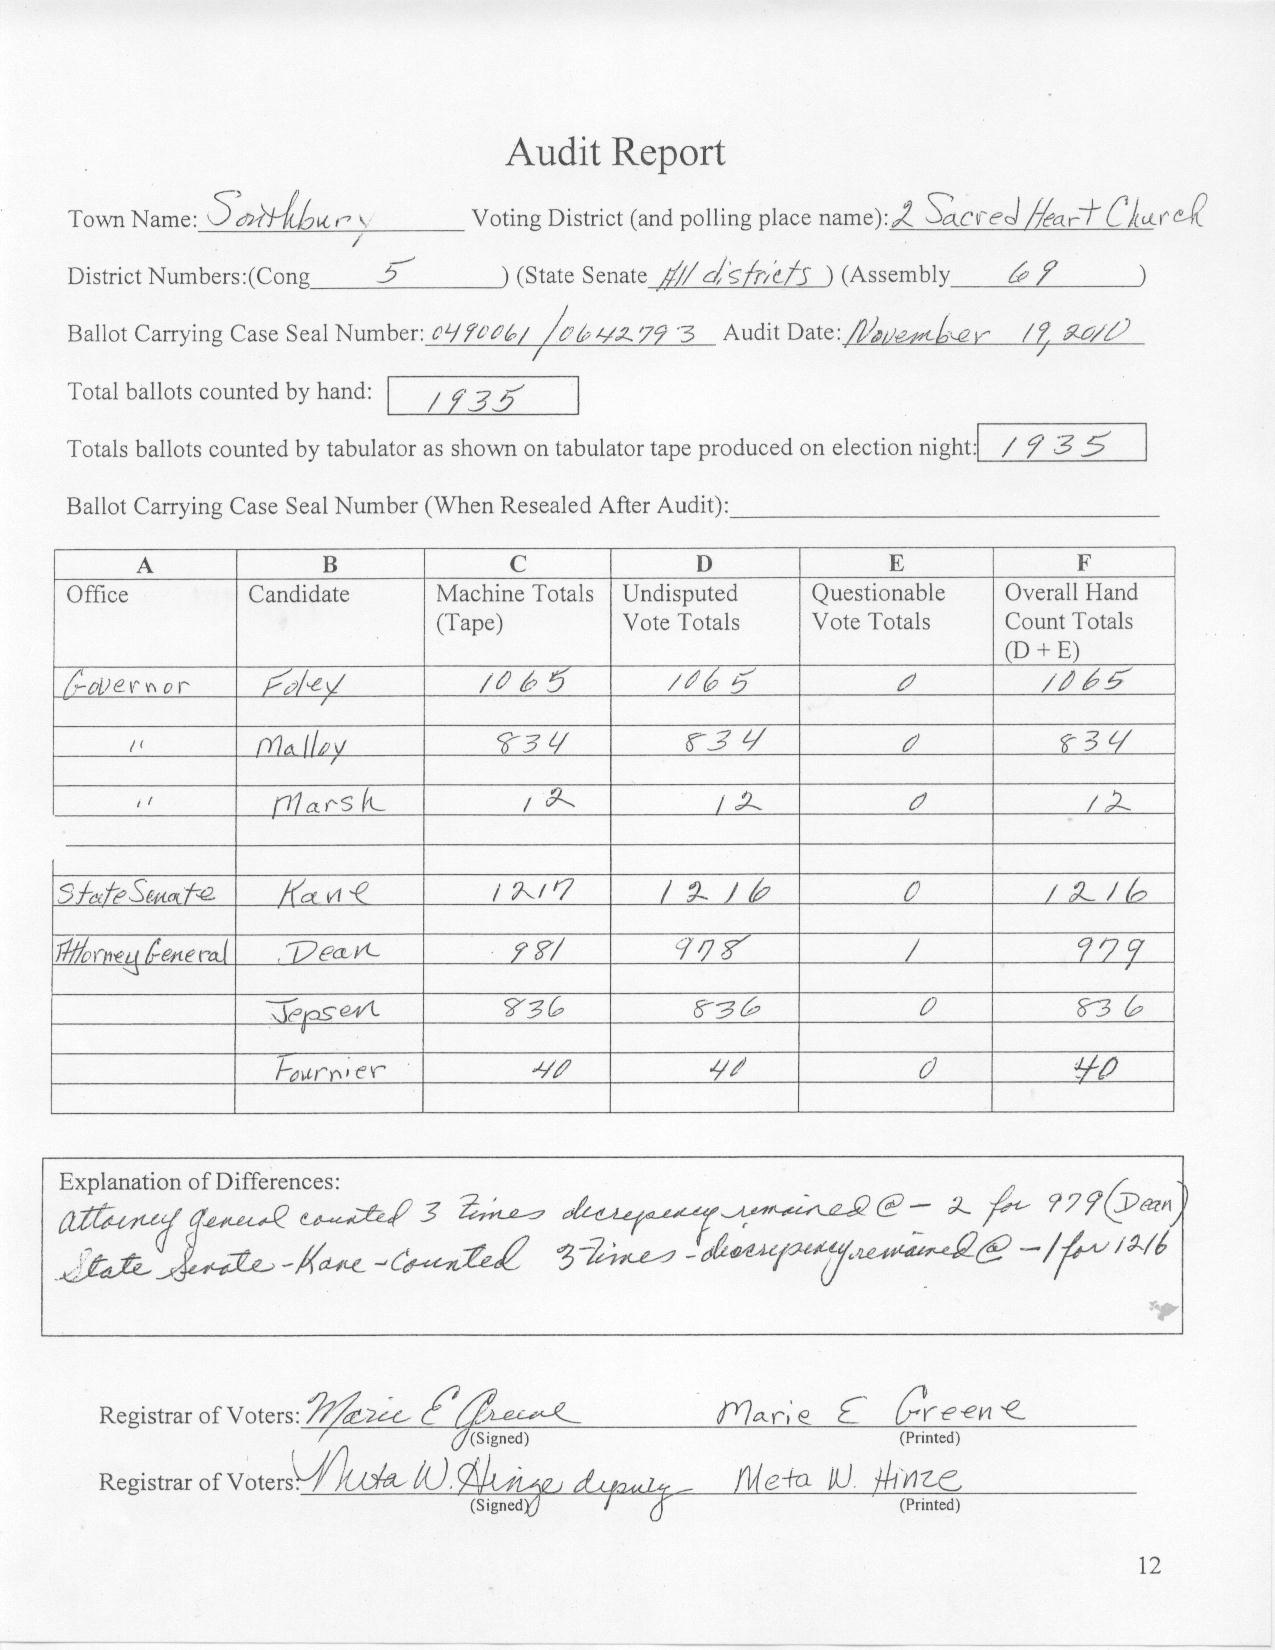 Audit Report
Town Name: Southbury Voting District (and polling place name): 2 Sacred Heart Church
District Numbers:(Cong 5 ) (State Senate All districts ) (Assembly 69 )
Ballot Carrying Case Seal Number: 0490061/0642793 Audit Date: November 19, 2010
Total ballots counted by hand: 1935
Totals ballots counted by tabulator as shown on tabulator tape produced on election night: 1935
Ballot Carrying Case Seal Number (When Resealed After Audit):
A B C D E F
Office Candidate Machine Totals Undisputed Questionable Overall Hand
(Tape) Vote Totals Vote Totals Count Totals
(D + E)
Governor Foley 1065 1065 0 1065
" Malloy 834 834 0 834
" Marsh 12 12 0 12
State Senate Kane 1217 1216 0 1216
Attorney General Dean 981 978 1 979
Jepsen 836 836 0 836
Fournier 40 40 0 40
Explanation of Differences:
Attorney General counted 3 times discrepency remained @ - 2 for 979 (Dean)
State Senate - Kane - Counted 3 times - discrepency remained @ - 1 for 1216
Registrar of Voters: Marie E Greene Marie E Greene
(Signed) (Printed)
Registrar of Voters: Meta W. Hinze deputy Meta W. Hinze
(Signed) (Printed)
12